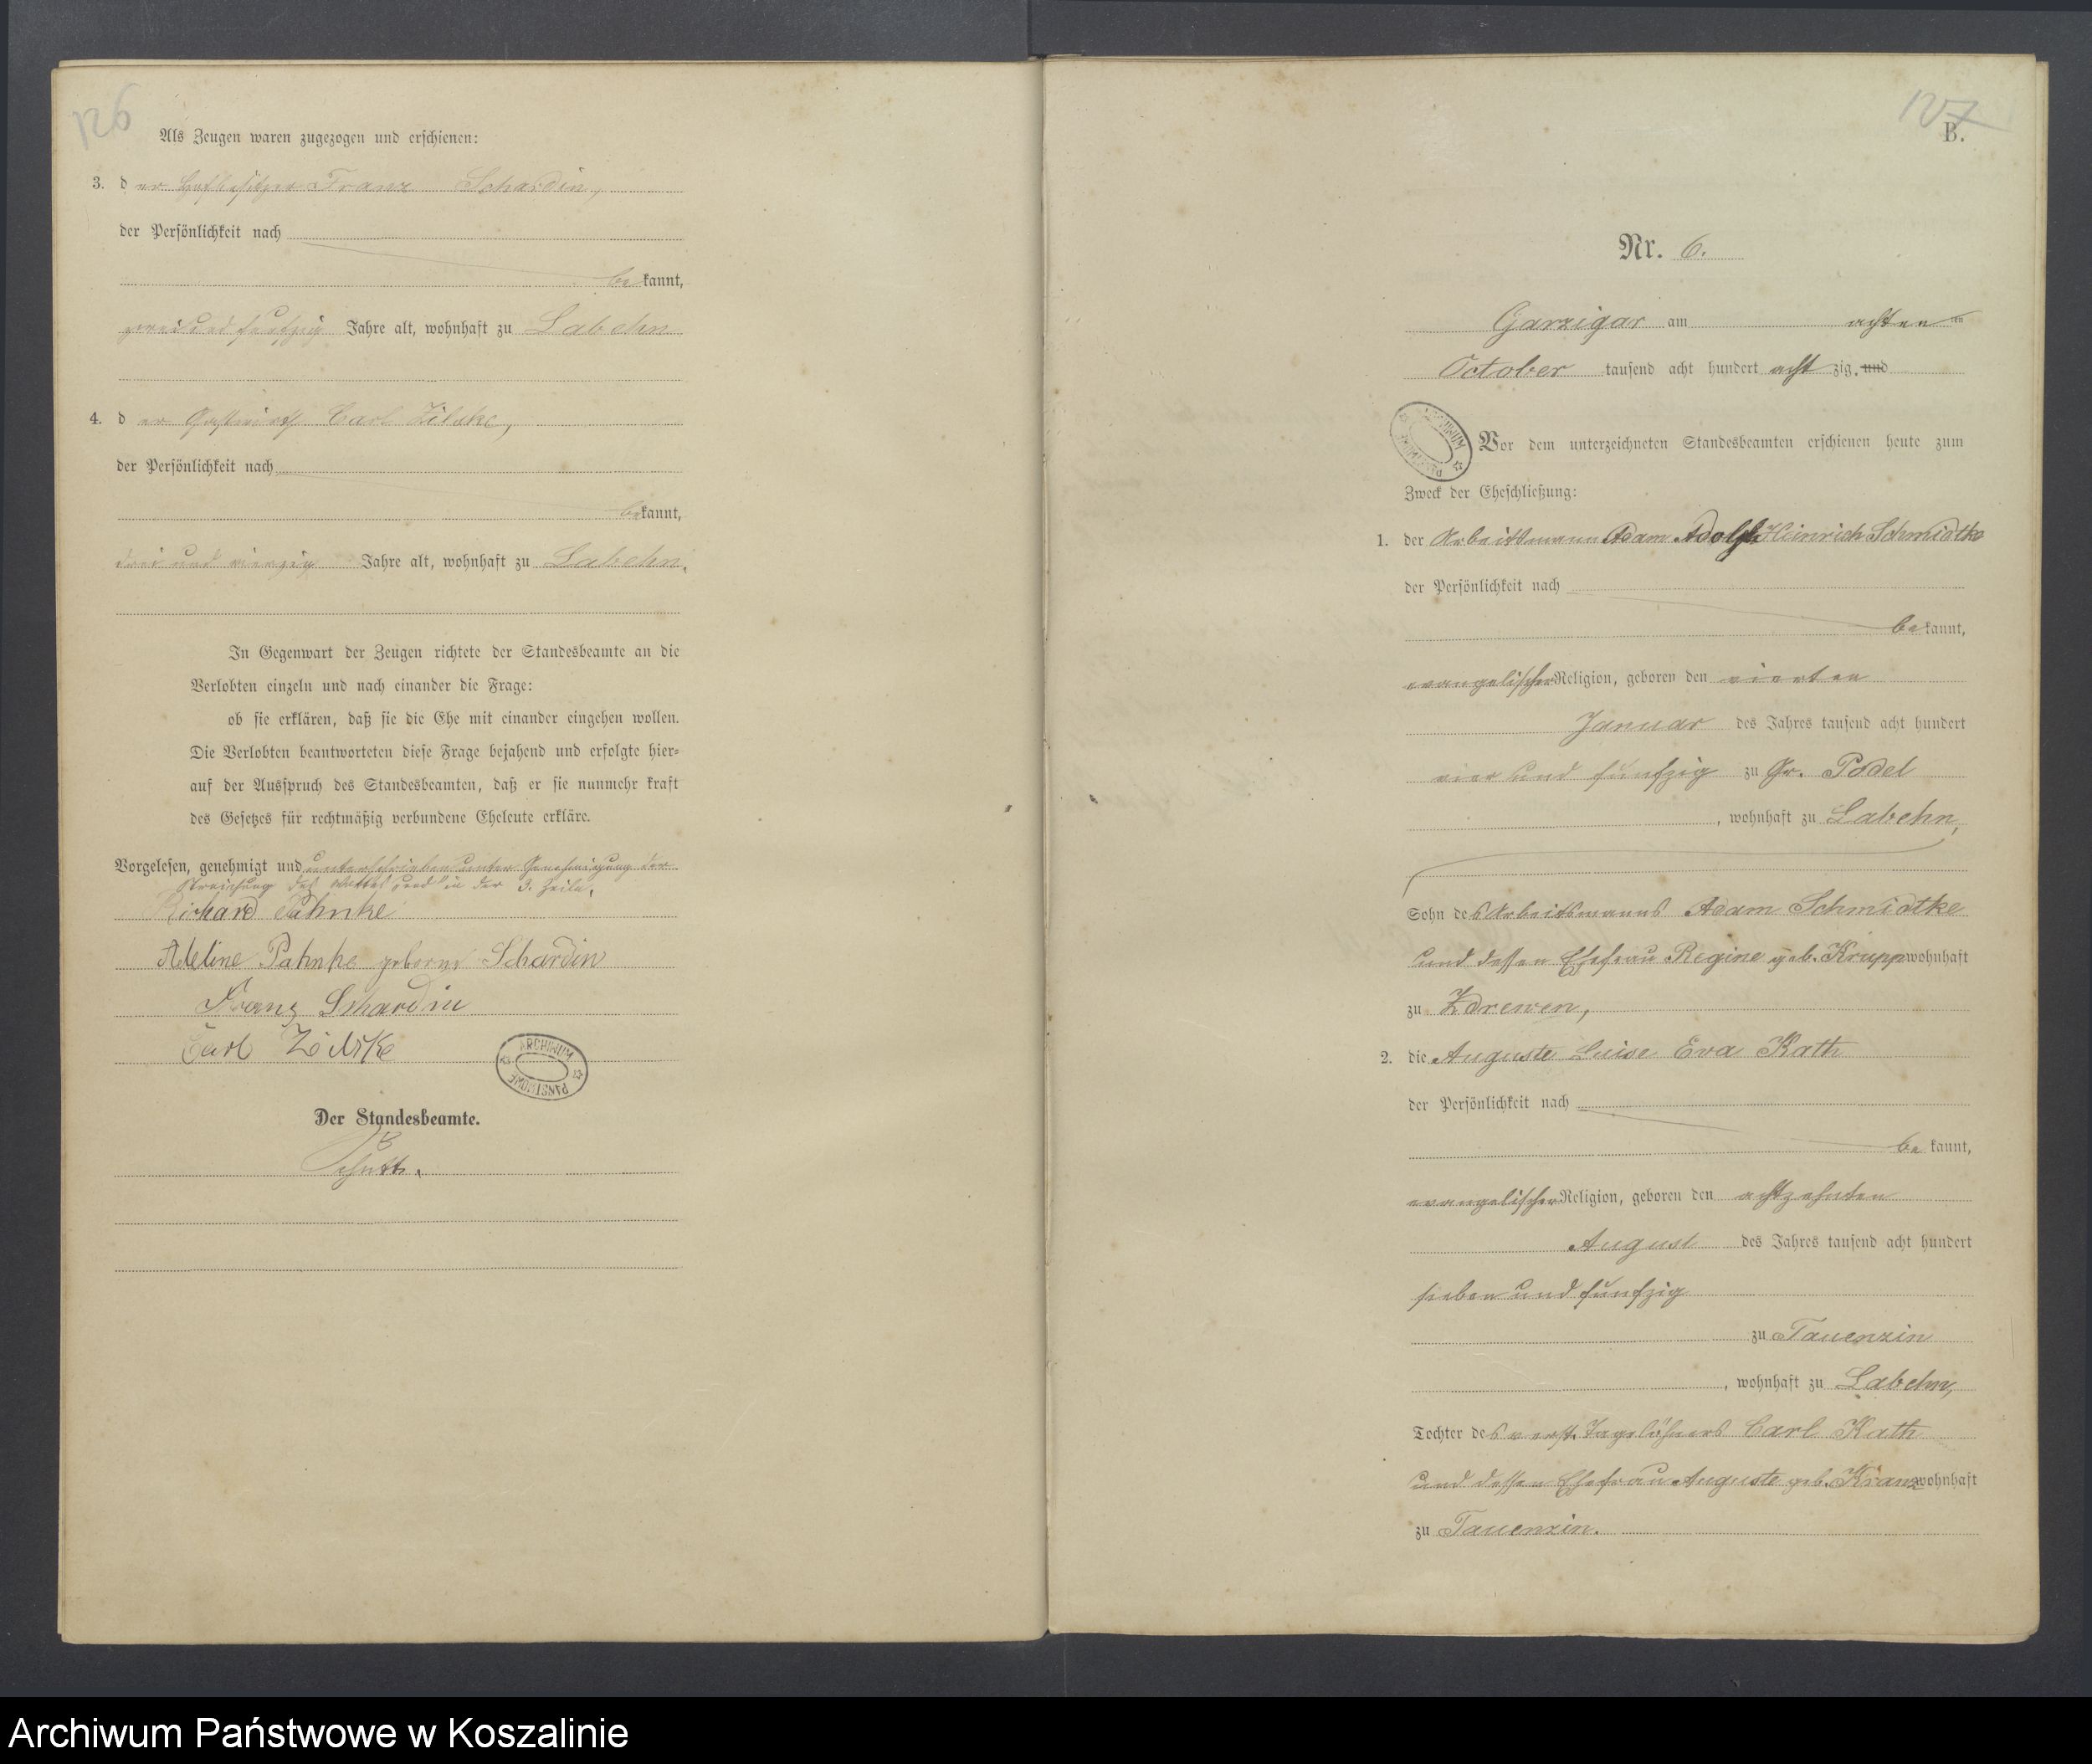 126
Als Zeugen waren zugezogen und erschienen:
3. der Hofbesitzer Franz Schardin,
der Persönlichkeit nach
bekannt,
zweiundfunfzig Jahre alt, wohnhaft zu Labehn
4. der Gastwirth Carl Zilske,
der Persönlichkeit nach
bekannt,
drei und vierzig Jahre alt, wohnhaft zu Labehn.
In Gegenwart der Zeugen richtete der Standesbeamte an die
Verlobten einzeln und nach einander die Frage:
ob sie erklären, daß sie die Ehe mit einander eingehen wollen.
Die Verlobten beantworteten diese Frage bejahend und erfolgte hier=
auf der Ausspruch des Standesbeamten, daß er sie nunmehr kraft
des Gesetzes für rechtmäßig verbundene Eheleute erkläre.
Vorgelesen, genehmigt und unterschrieben unter Genehmigung der
Streichung des Wortes „und“ in der 3. Zeile.
Richard Pahnke
Adeline Pahnke geborne Schardin
Franz Schardin
Carl Zilske
ARCHIWUM PAŃSTWOWE
Der Standesbeamte.
127
B.
Nr. 6.
Garzigar am achten
October tausend acht hundert acht zig. und
ARCHIWUM PAŃSTWOWE
Vor dem unterzeichneten Standesbeamten erschienen heute zum
Zweck der Eheschließung:
1. der Arbeitsmann Adam Adolph Heinrich Schmidtke
der Persönlichkeit nach
bekannt,
evangelischer Religion, geboren den vierten
Januar des Jahres tausend acht hundert
vier und funfzig zu Gr. Podel
, wohnhaft zu Labehn,
Sohn des Arbeitsmanns Adam Schmidtke
und dessen Ehefrau Regine geb. Krupp wohnhaft
zu Zdrewen,
2. die Auguste Luise Eva Kath
der Persönlichkeit nach
bekannt,
evangelischer Religion, geboren den achtzehnten
August des Jahres tausend acht hundert
sieben und funfzig
zu Tauenzin
, wohnhaft zu Labehn,
Tochter des verst. Tagelöhners Carl Kath
und dessen Ehefrau Auguste geb. Kranz wohnhaft
zu Tauenzin.
Archiwum Państwowe w Koszalinie